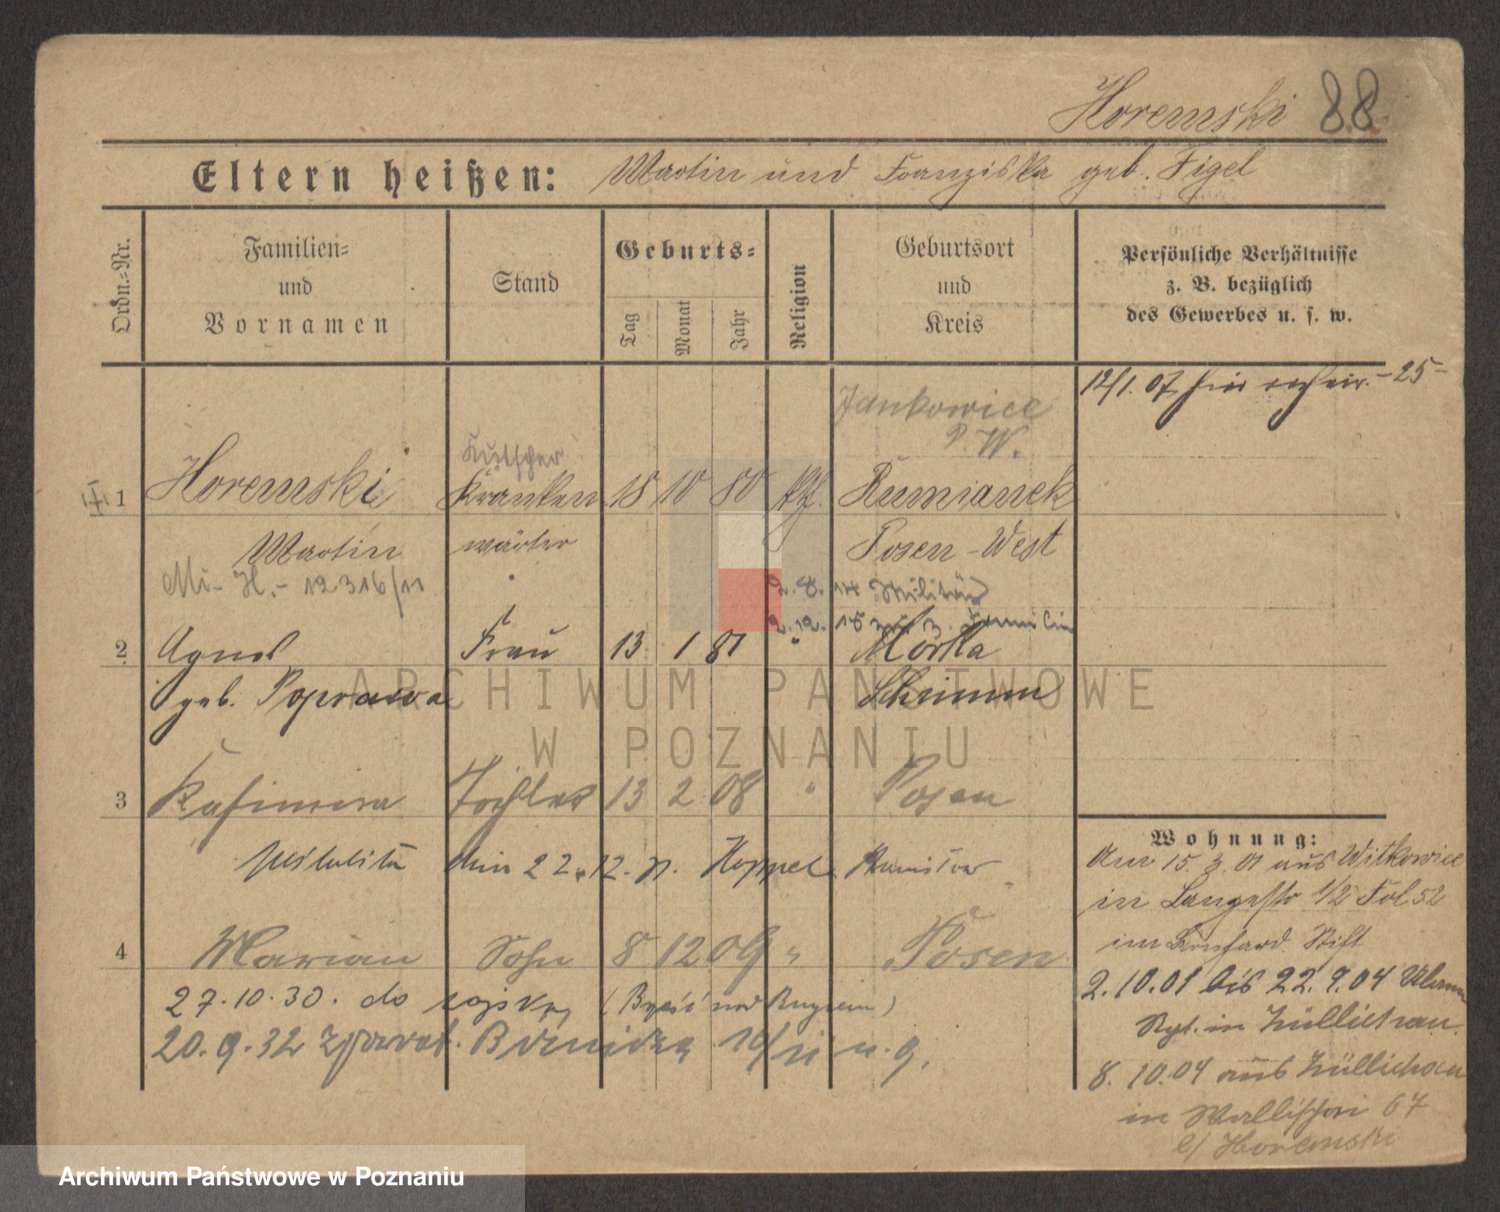 Horemski 88
Eltern heißen: Martin und Franziska geb. Figel
Ordn.=Nr.
Familien= und Vornamen
Stand
Geburts=
Tag Monat Jahr
Religion
Geburtsort und Kreis
Persönliche Verhältnisse z. B. bezüglich des Gewerbes u. s. w.
12/1. 07 hier - 25 -
Jankowice
P. W.
Kutscher
1 Horemski Kranken 18 10 80 Rumianek
Martin wärter Posen-West
Mi- H.- 12316/11
2. 8. 14 Militär
2. 12. 18 z. Familie
2 Agnes Frau 13 1 81 " Morka
geb. Poprawa Schrimm
3 Kasimira Tochter 13 2 08 " Posen
22. 12. Hoppel
4 Marian Sohn 8 12 09 " Posen
27. 10. 30. do wojska (Brześć nad Bugiem)
20. 9. 32
Wohnung:
Am 15. 3. 01 aus Witkowice
in Langestr 1/2 Fol 52
im Stift
2. 10. 01 bis 22. 9. 04 Ulanen
Rgt. in Züllichau.
8. 10. 04 aus Züllichau
in Wallischei 67
b/ Horemski
ARCHIWUM PAŃSTWOWE
W POZNANIU
Archiwum Państwowe w Poznaniu